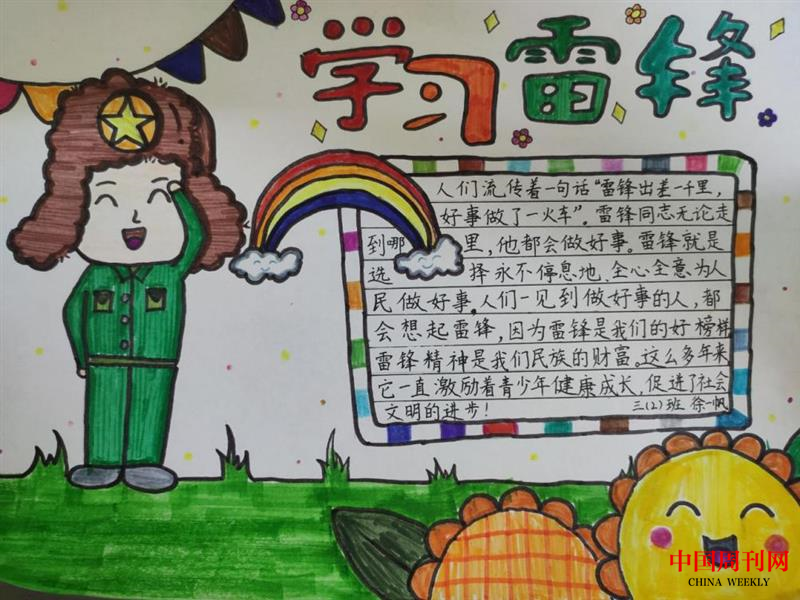 学习雷锋
人们流传着一句话“雷锋出差一千里，
好事做了一火车”。雷锋同志无论走
到哪里，他都会做好事。雷锋就是
选择永不停息地、全心全意为人
民做好事。人们一见到做好事的人，都
会想起雷锋，因为雷锋是我们的好榜样
雷锋精神是我们民族的财富。这么多年来
它一直激励着青少年健康成长，促进了社会
文明的进步！ 三(2)班 徐一帆
中国周刊网
CHINA WEEKLY